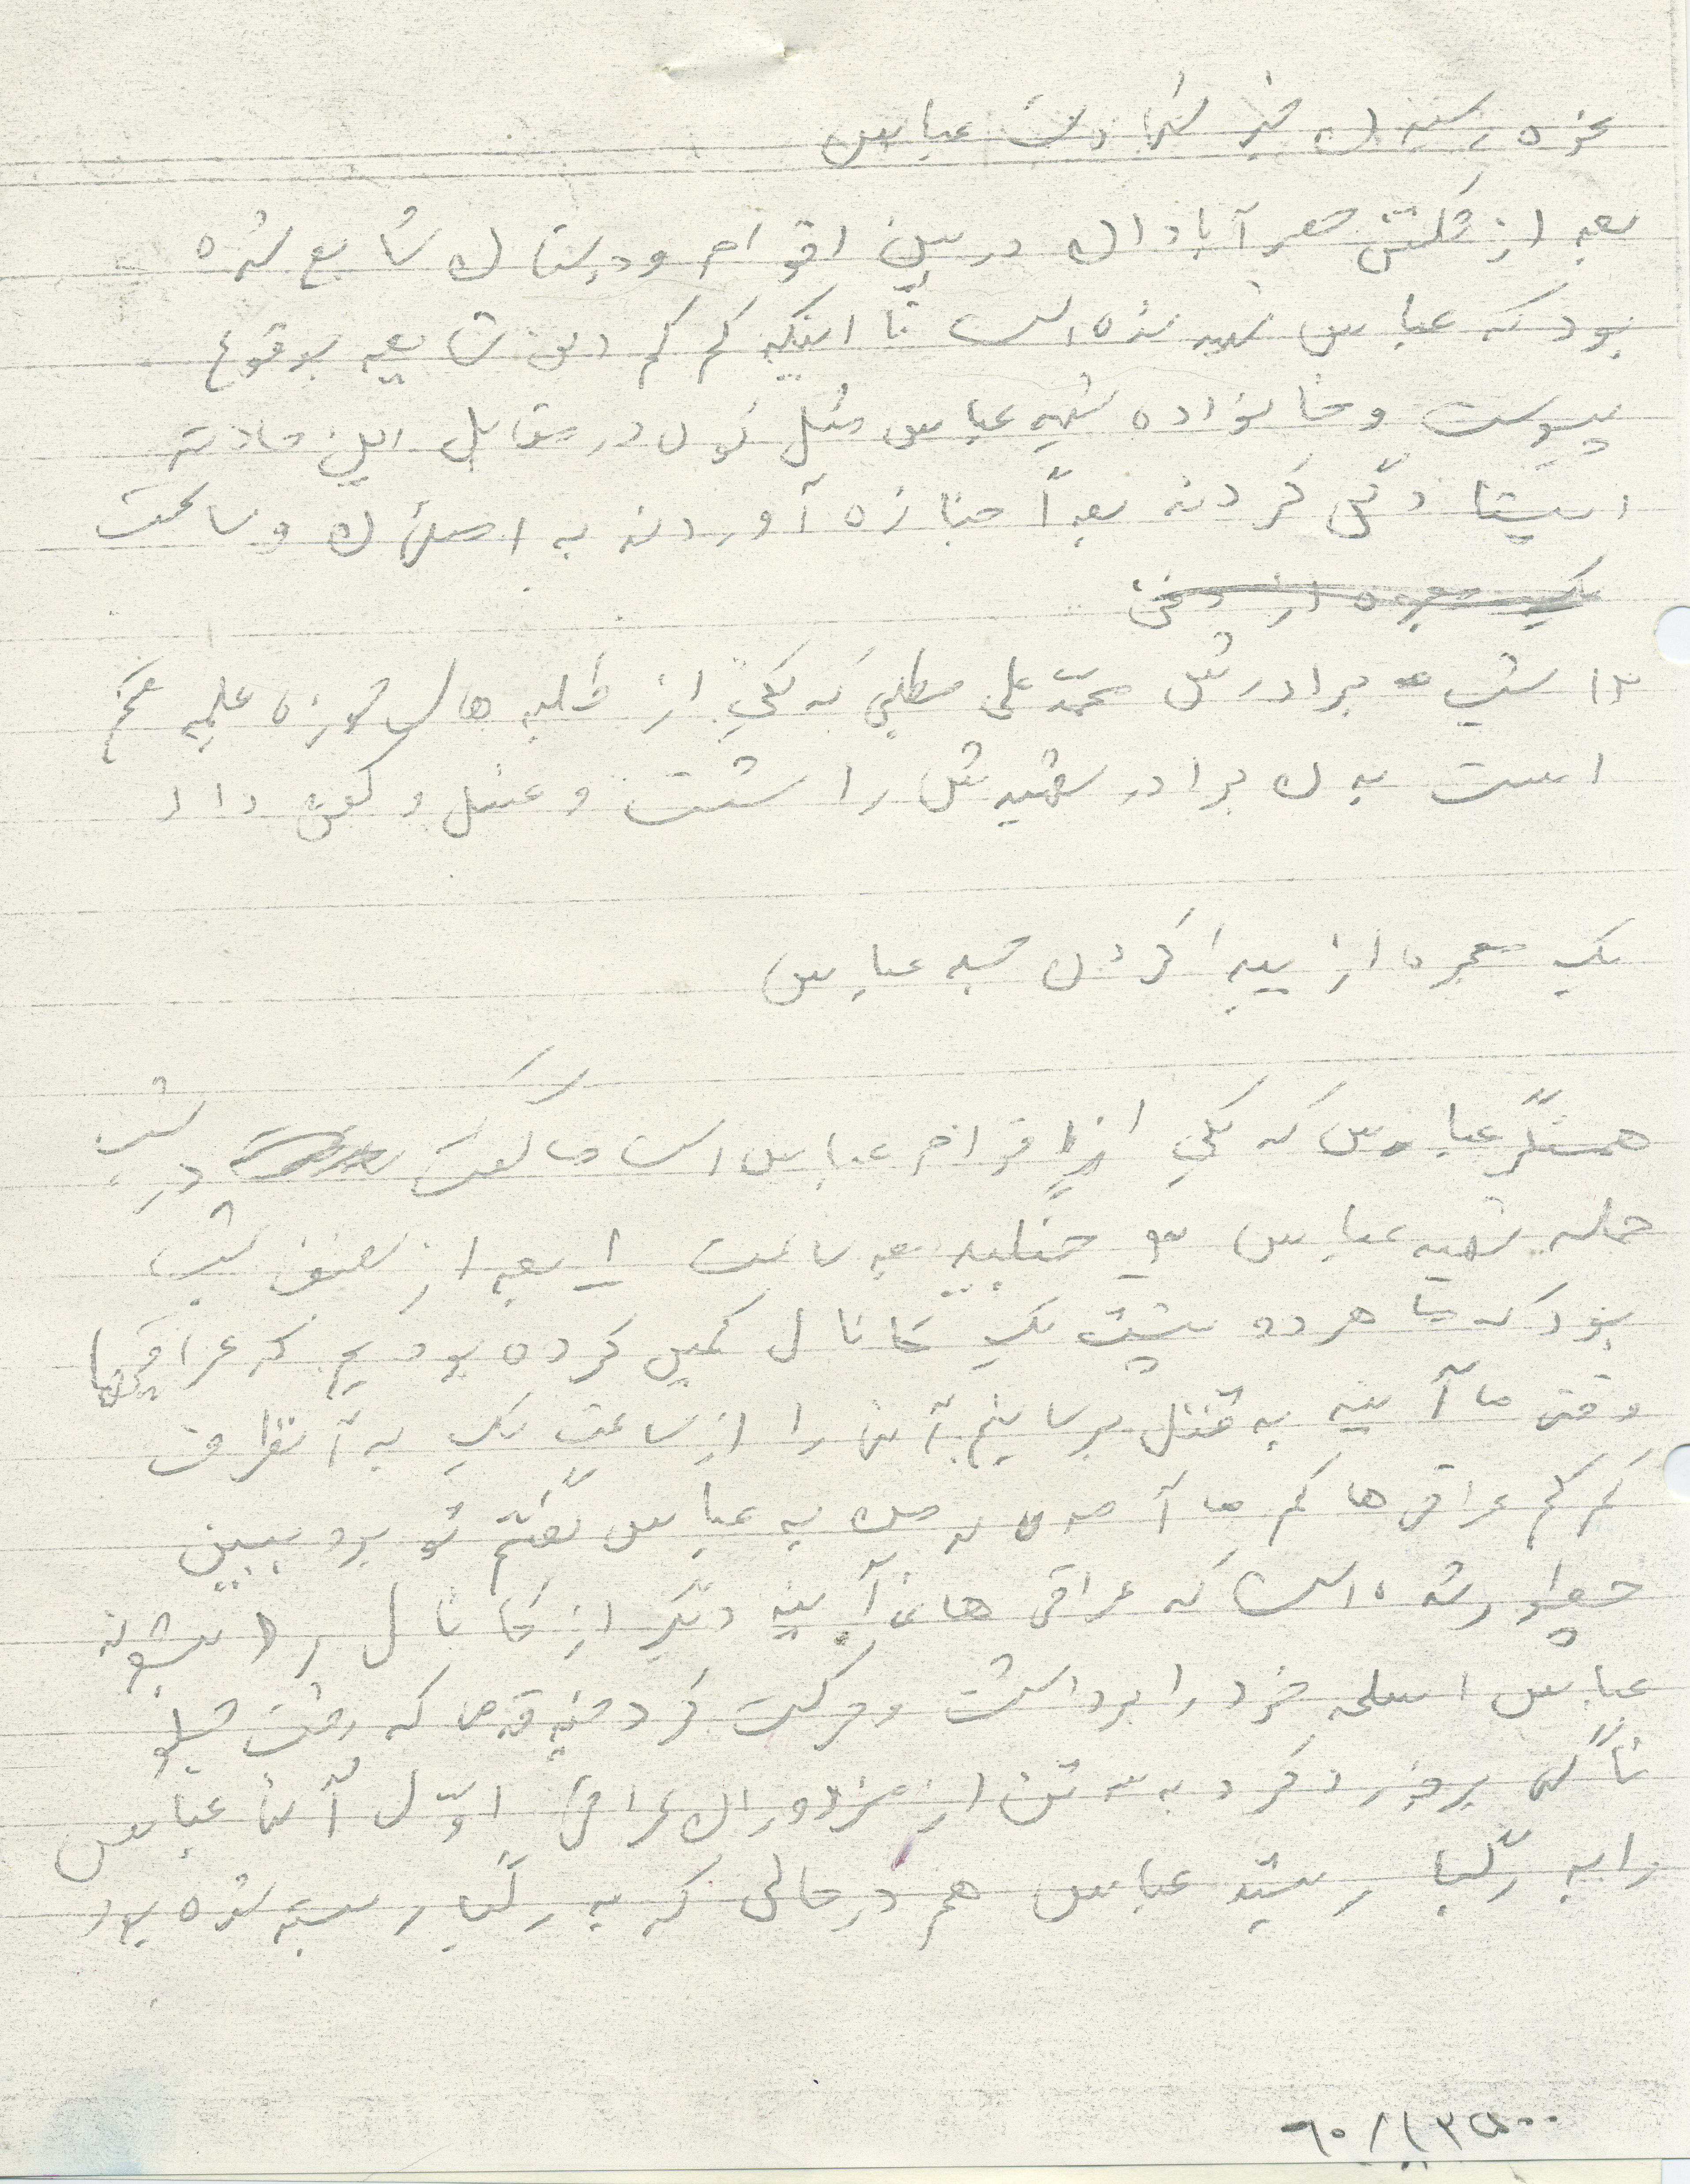 نحوه رسیدن خبر شهادت عباس
بعد از شکستن حصر آبادان در بین اقوام و دوستان شایع شده
بود که عباس شهید شده است تا اینکه کم کم این شایعه بوقوع
پیوست و خانواده شهید عباس مثل کوه در مقابل این حادثه
ایستادگی کردند بعداً جنازه آوردند به اصفهان و ساعت
یک معجزه از
۱۲ شب برادرش محمّد علی مطلبی که یکی از طلبه های حوزه علمیه قم
است بدن برادر شهیدش را شست و غسل و کفن داد
یک معجزه از پیدا کردن جسد عباس
همسنگر عباس که یکی از اقوام عباس است ما گفت در شب
حمله شهید عباس جنگید ساعت ۱ بعد از نصف شب
بود که ما هر دو پشت یک کانال کمین کرده بودیم که عراقیها
وقتی ما آیند به قتل برسانیم آنان را از ساعت یک به آنطرف
کم کم عراقی ها کم می آمدند من به عباس گفتم تو برو ببین
چطور شده است که عراقی ها نمی آیند دیگر از کانال رد بشوند
عباس اسلحه خود را برداشت و حرکت کرد چند قدمی که رفت جلو
ناگهان برخورد کرد به سه تن از مزدوران عراقی اوّل آنان عباس
را به رگبار بستند عباس هم در حالی که به رگبار بسته شده بود